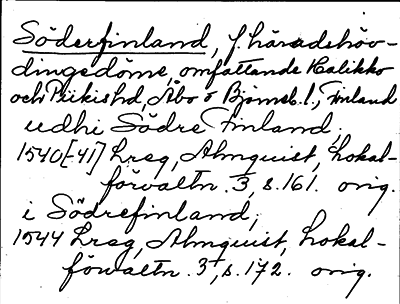 Söderfinland, f. häradshöv-
dingedöme, omfattande Halikko
och Piikis hd, Åbo o Björneb. l., Finland
udhi Södre Finland,
1540[-41] Lreg, Almquist, Lokal-
förvaltn. 3, s. 161. orig.
i Södrefinland,
1544 Lreg, Almquist, Lokal-
förvaltn. 3, s. 172. orig.